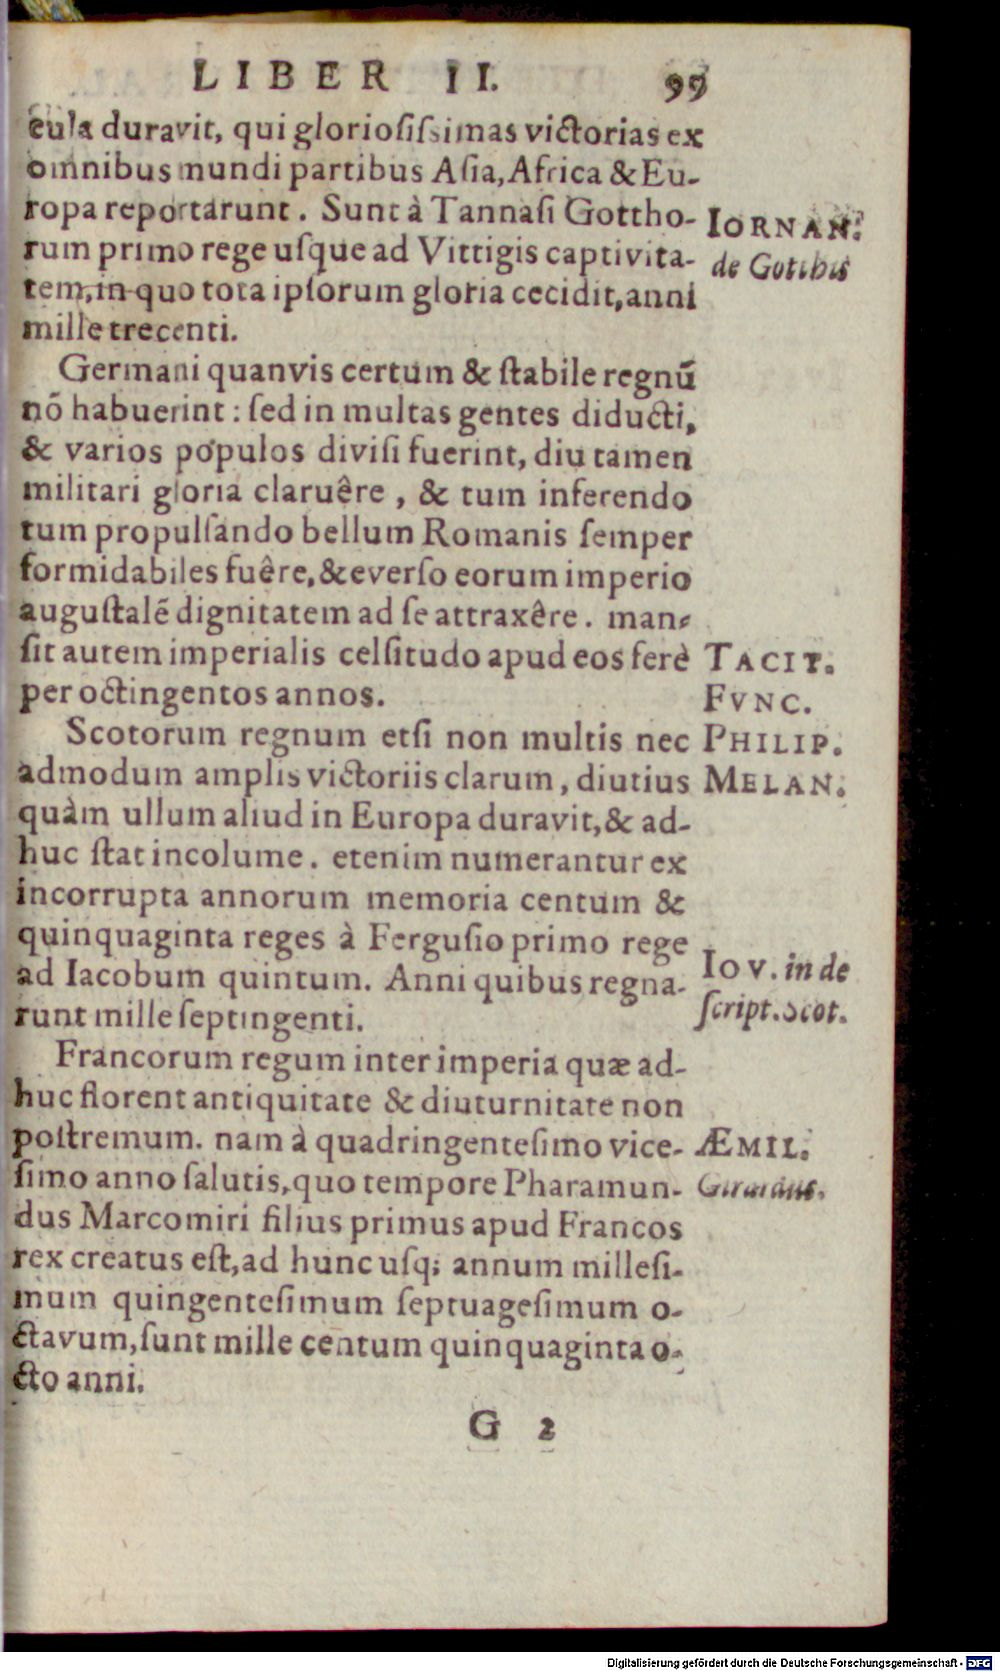 LIBER II. 99
cula duravit, qui gloriosiſsimas victorias ex
omnibus mundi partibus Aſia, Africa & Eu-
ropa reportarunt. Sunt à Tannaſi Gottho-
IORNAN.
rum primo rege uſque ad Vittigis captivita-
de Gotthis
tem, in quo tota ipſorum gloria cecidit, anni
mille trecenti.
Germani quanvis certum & ſtabile regnũ
nõ habuerint: ſed in multas gentes diducti,
& varios populos diviſi fuerint, diu tamen
militari gloria claruêre, & tum inferendo
tum propulſando bellum Romanis ſemper
formidabiles fuêre, & everſo eorum imperio
auguſtalẽ dignitatem ad ſe attraxêre. man-
ſit autem imperialis celſitudo apud eos ferè
TACIT.
per octingentos annos.
FVNC.
Scotorum regnum etſi non multis nec
PHILIP.
admodum amplis victoriis clarum, diutius
MELAN.
quàm ullum aliud in Europa duravit, & ad-
huc ſtat incolume. etenim numerantur ex
incorrupta annorum memoria centum &
quinquaginta reges à Ferguſio primo rege
IOV. in de
ad Iacobum quintum. Anni quibus regna-
ſcript. Scot.
runt mille ſeptingenti.
Francorum regum inter imperia quæ ad-
huc florent antiquitate & diuturnitate non
poſtremum. nam à quadringenteſimo vice-
ÆMIL.
ſimo anno ſalutis, quo tempore Pharamun-
Girardus.
dus Marcomiri filius primus apud Francos
rex creatus eſt, ad hunc uſq; annum milleſi-
mum quingenteſimum ſeptuageſimum o-
ctavum, ſunt mille centum quinquaginta o-
cto anni.
G 2
Digitalisierung gefördert durch die Deutsche Forschungsgemeinschaft - DFG